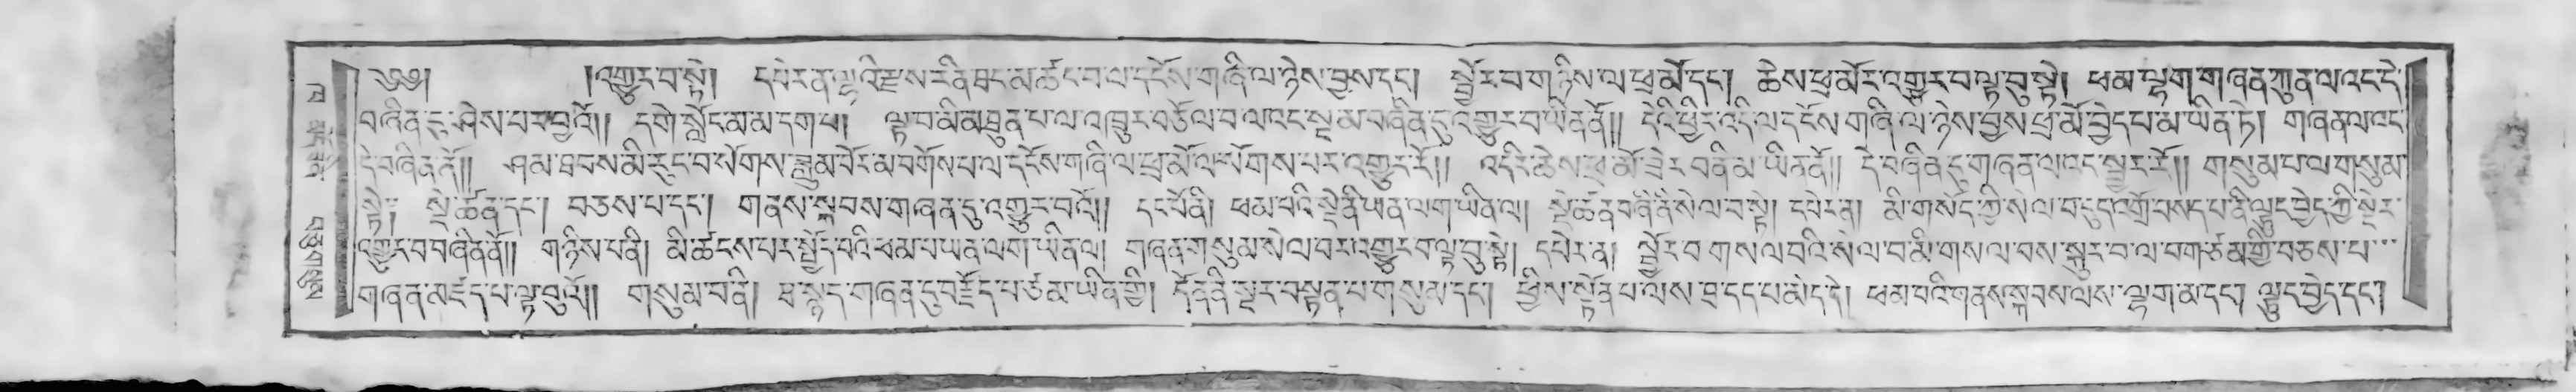 ༄༅། །འགྱུར་བ་སྟེ། དཔེར་ན་ལྷའི་རྫས་རིན་ཐང་མ་ཚང་བ་ལ་དངོས་གཞི་ལ་ཉེས་བྱས་དང་། སྦྱོར་བ་གཉིས་ལ་ཕྲ་མོ་དང་། ཆེས་ཕྲ་མོར་འགྱུར་བ་ལྟ་བུ་སྟེ། ཕམ་ལྷག་གཞན་ཀུན་ལའང་དེ་
བཞིན་དུ་ཤེས་པར་བྱའོ།། དགེ་སློང་མ་མ་དག་པ། ལྟ་བ་མི་མཐུན་པ་ལ་འཁྱུར་བཙོལ་བ་ལའང་སྔ་མ་བཞིན་དུ་འགྱུར་བ་ཡིན་ནོ།། དེའི་ཕྱིར་འདི་ལ་དངོས་གཞི་ལ་ཉེས་བྱས་ཕྲ་མོ་བྱེད་པ་མ་ཡིན་ཏེ། གཞན་ལའང་
དེ་བཞིན་ནོ།། ཤམ་ཐབས་མི་རུང་བ་སོགས་ཟླུམ་པོར་མ་བགོས་པ་ལ་དངོས་གཞི་ལ་ཕྲ་མོ་ལ་སོགས་པར་འགྱུར་རོ།། འདིར་ཆེས་ཕྲ་མོ་ཟེར་བ་ནི་མ་ཡིན་ནོ།། དེ་བཞིན་དུ་གཞན་ལའང་སྦྱར་རོ།། གསུམ་པ་ལ་གསུམ་
སྟེ༔ སྡེ་ཚན་དང་། བཅས་པ་དང་། གནས་སྐབས་གཞན་དུ་འགྱུར་བའོ།། དང་པོ་ནི། ཕམ་པའི་སྡེ་ནི་ཡན་ལག་ཡིན་ལ། སྡེ་ཚན་བཞི་ནི་སེལ་བ་སྟེ། དཔེར་ན། མི་གསོད་ཀྱི་སེལ་བ་དུད་འགྲོ་བསད་པ་ནི་ལྟུང་བྱེད་ཀྱི་སྡེར་
འགྱུར་བ་བཞིན་ནོ།། གཉིས་པ་ནི། མི་ཚངས་པར་སྤྱོད་པའི་ཕམ་པ་ཡན་ལག་ཡིན་ལ། གཞན་གསུམ་སེལ་བར་འགྱུར་བ་ལྟ་བུ་སྟེ། དཔེར་ན། སྦྱོར་བ་གསལ་བའི་སེལ་བ་མི་གསལ་བས་སྐུར་བ་ལ་བཀ་ཙམ་གྱི་བཅས་པ་
གཞན་མེད་པ་ལྟ་བུའོ།། གསུམ་པ་ནི། ཐ་སྙད་གཞན་དུ་བརྗོད་པ་ཙམ་ཡིན་གྱི། དོན་ནི་སྔར་བསྟན་པ་གསུམ་དང་། ཕྱིས་སྟོན་པ་ལས་ཐ་དད་པ་མེད་དེ། ཕམ་པའི་གནས་སྐབས་ལས་ལྷག་མ་དང་། ལྟུང་བྱེད་དང་།